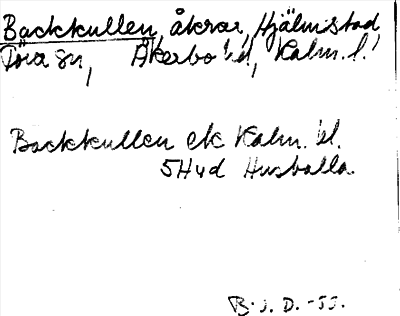 Backkullen, åkrar, Hjälmstad,
Torp sn, Åkerbo hd, Kalm. l.
Backkullen ek Kalm. bl.
5H4d Husvalla.
B. I. D. -55.